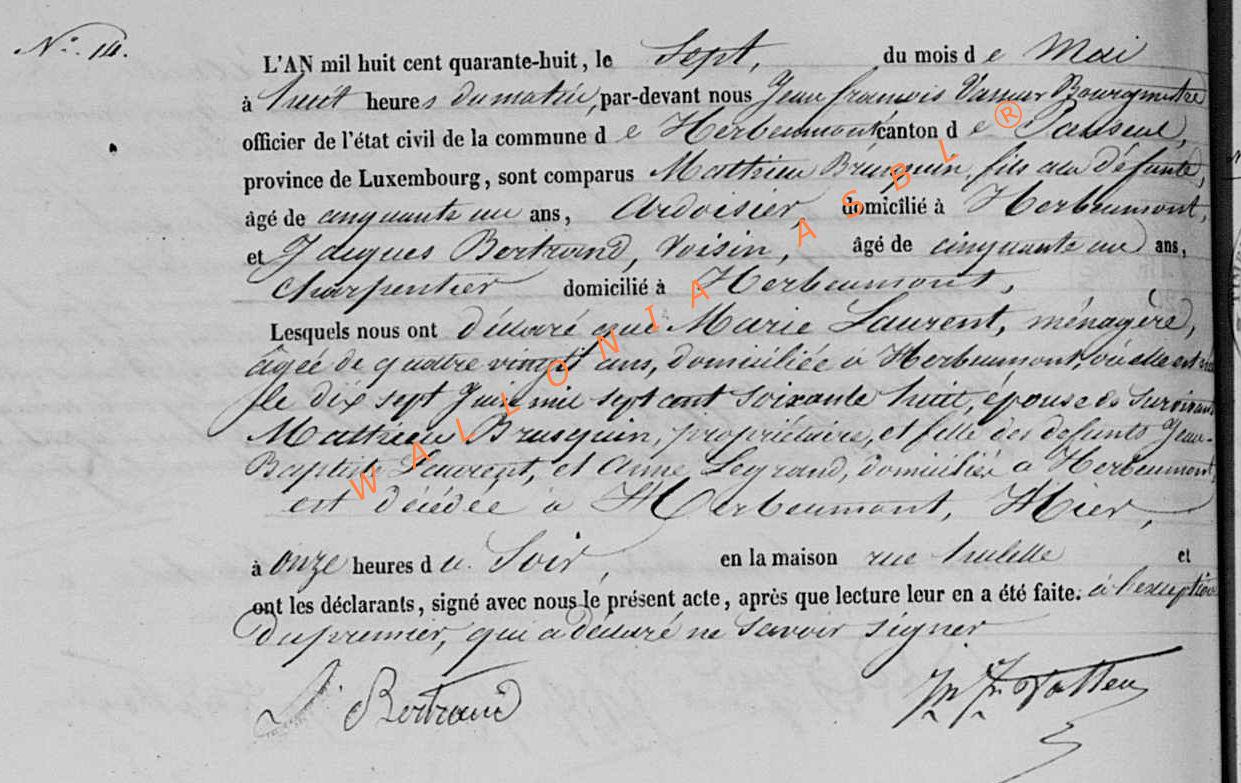 N° 14.
L'AN mil huit cent quarante-huit, le Sept, du mois d e Mai
à huit heures du matin, par-devant nous Jean françois Bourgmestre
officier de l'état civil de la commune d e Herbeumont canton d e
province de Luxembourg, sont comparus Mathieu Brusquin, fils de la défunte,
âgé de cinquante un ans, Ardoisier, domicilié à Herbeumont,
et Jacques Bertrand, Voisin, âgé de cinquante un ans,
Charpentier domicilié à Herbeumont,
Lesquels nous ont déclaré que Marie Laurent, ménagère,
âgée de quatre vingt ans, domiciliée à Herbeumont, où elle est née
le dix sept Juin mil sept cent soixante huit, épouse de Survivant
Mathieu Brusquin, propriétaire, et fille des défunts Jean-
Baptiste Laurent, et Anne Legrand, domiciliés à Herbeumont,
est décédée à Herbeumont, Hier,
à Onze heures d u Soir, en la maison rue et
ont les déclarants, signé avec nous le présent acte, après que lecture leur en a été faite. à l'exception
du premier, qui a déclaré ne savoir signer
J. Bertrand
WALLONIA ASBL ®